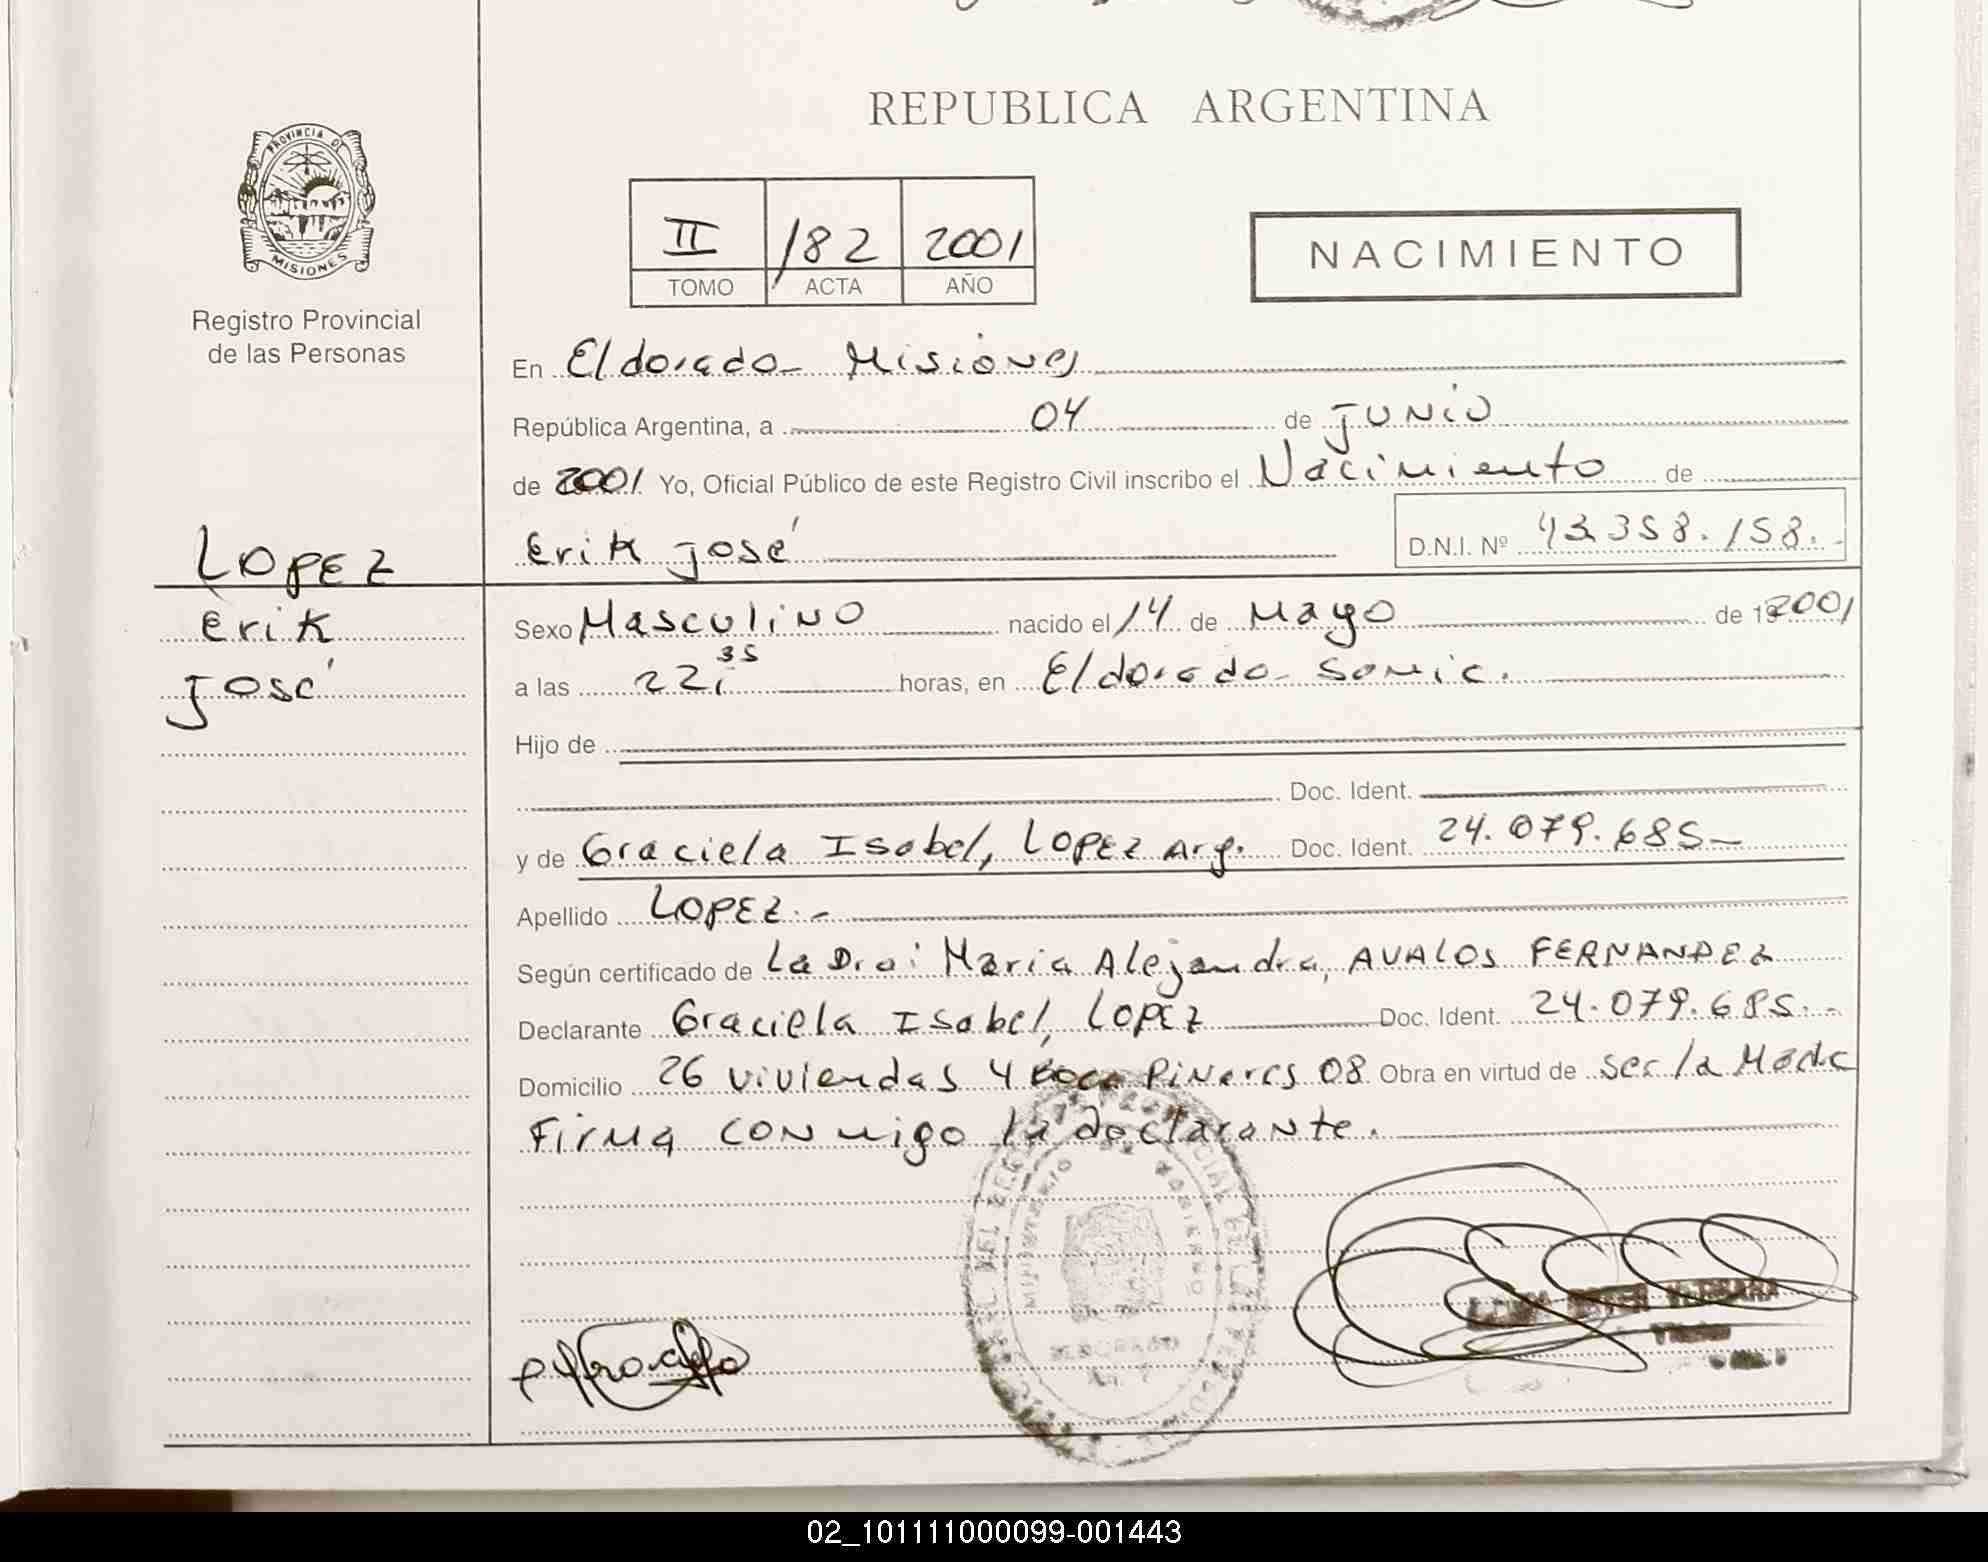 REPUBLICA ARGENTINA
PROVINCIA DE
MISIONES
Registro Provincial
de las Personas
II 182 2001
TOMO ACTA AÑO
NACIMIENTO
En Eldorado - Misiones
República Argentina, a 04 de Junio
de 2001 Yo, Oficial Público de este Registro Civil inscribo el Nacimiento de
Erik José D.N.I. Nº 43.358.158.-
LOPEZ
Erik
José
Sexo Masculino nacido el 14 de Mayo de 192001
a las 22;35 horas, en Eldorado - Samic.
Hijo de
Doc. Ident.
y de Graciela Isabel, LOPEZ Arg. Doc. Ident. 24.079.685-
Apellido LOPEZ.-
Según certificado de La Dra: Maria Alejandra, AVALOS FERNANDEZ
Declarante Graciela Isabel, LOPEZ Doc. Ident. 24.079.685.-
Domicilio 26 viviendas 4 Boca Pinares 08 Obra en virtud de ser la Madre
Firma conmigo la declarante.
MINISTERIO DE GOBIERNO
ELDORADO
02_101111000099-001443